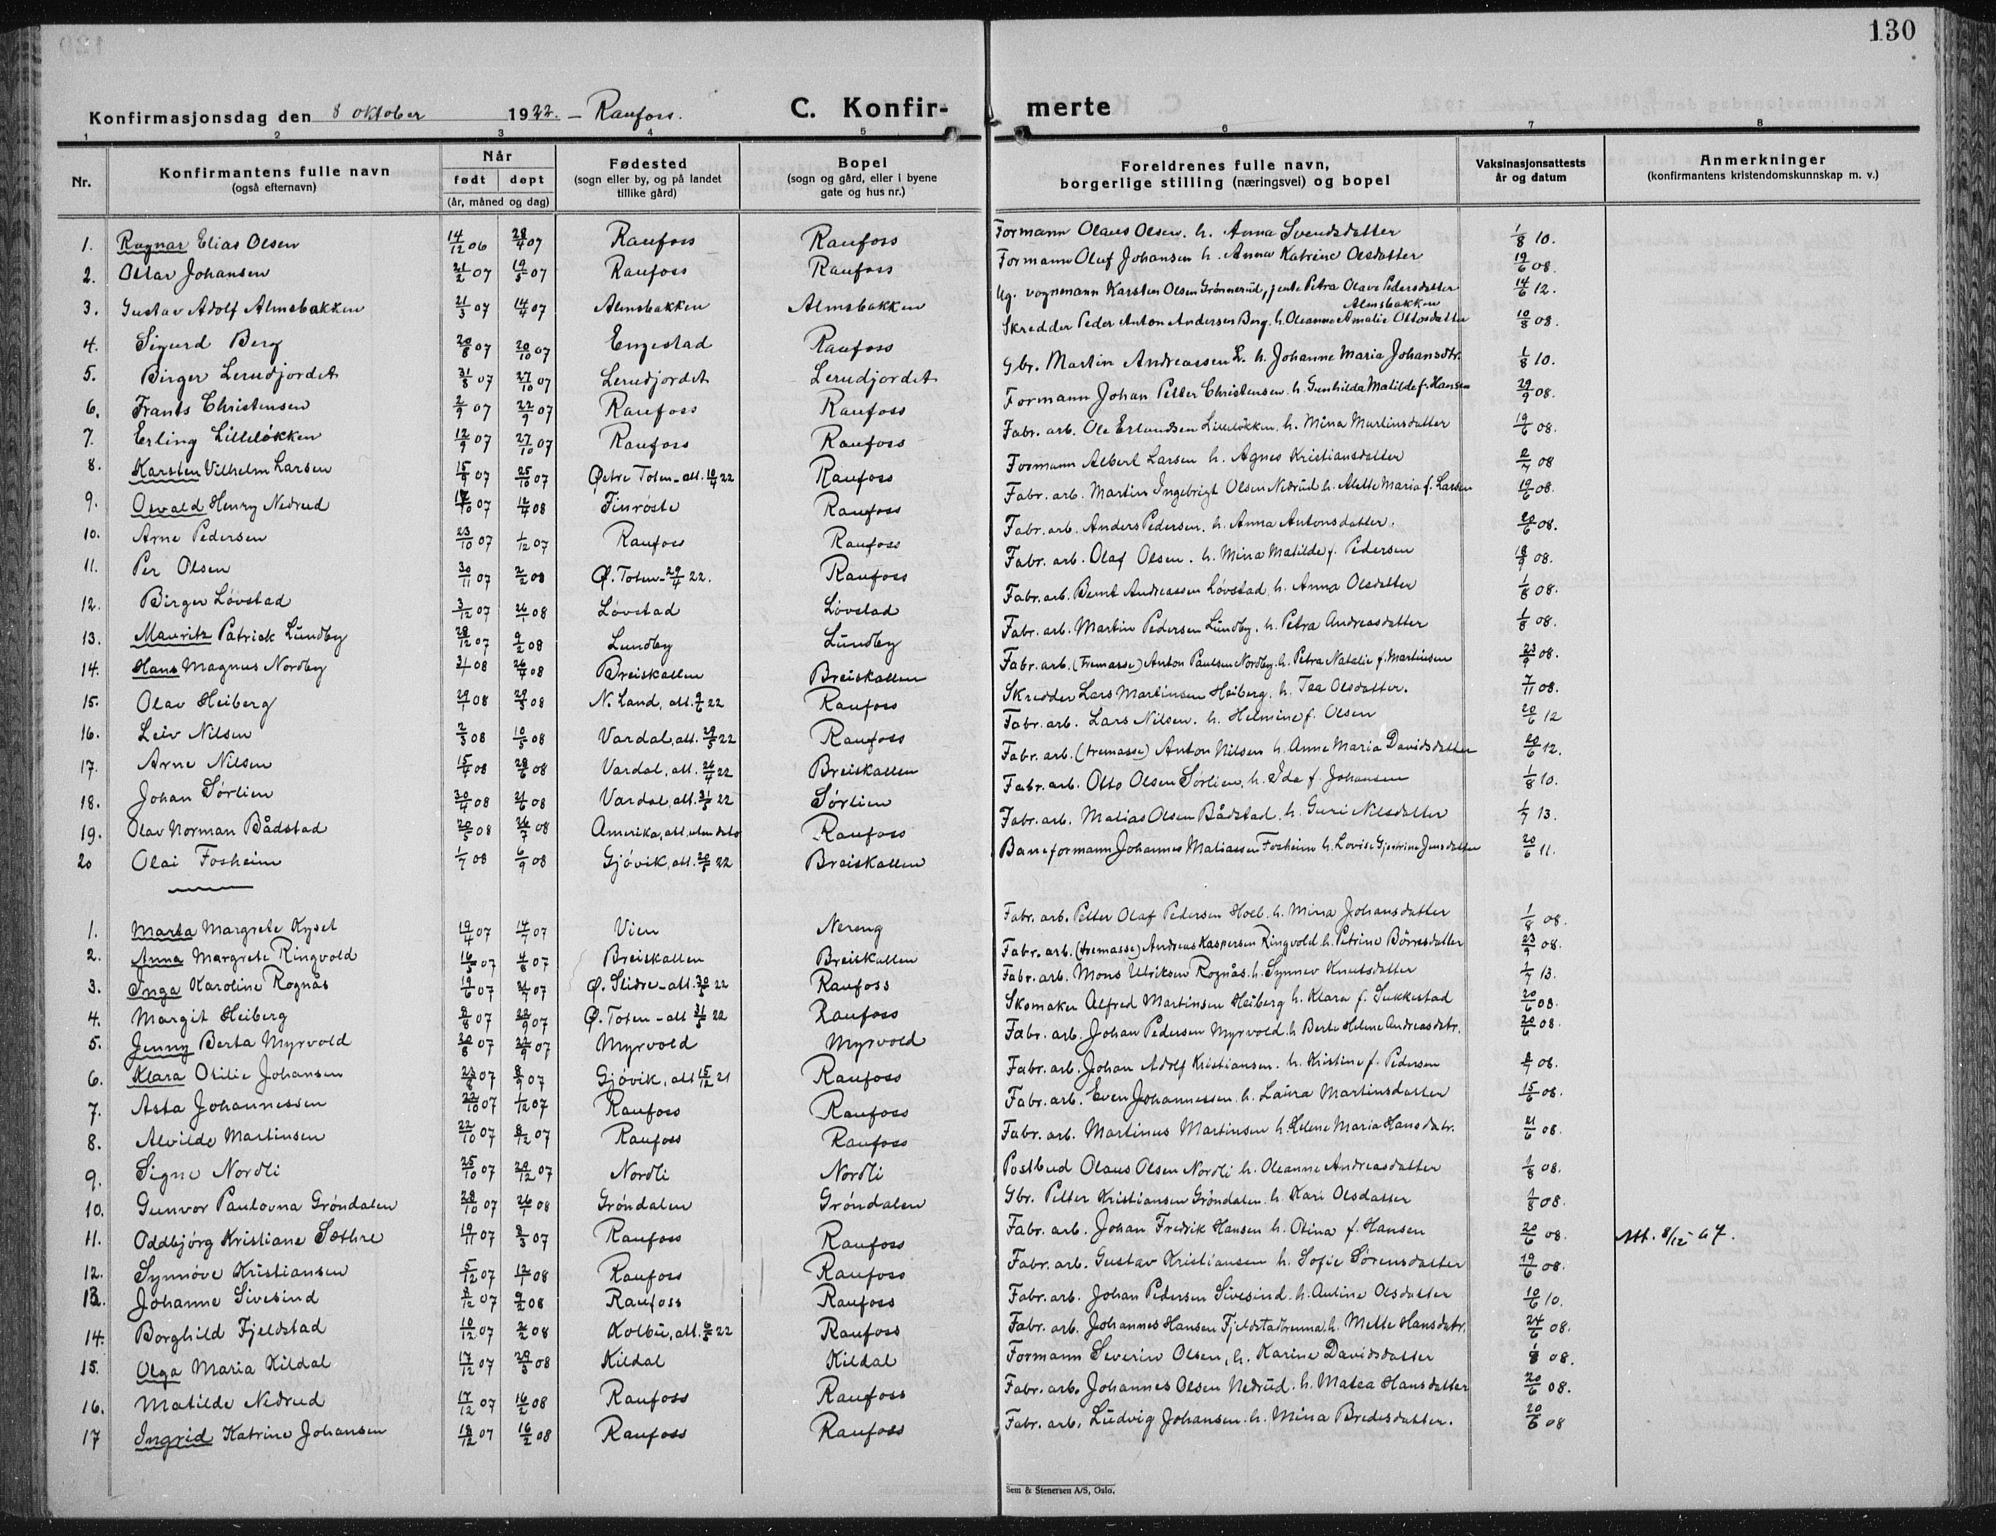 130
Konfirmasjonsdag den 8 oktober 1922. – Raufoss.
C. Konfir- merte
1 2 3 4 5 6 7 8
Nr. Konfirmantens fulle navn (også efternavn) Når født døpt (år, måned og dag) Fødested (sogn eller by, og på landet tillike gård) Bopel (sogn og gård, eller i byene gate og hus nr.) Foreldrenes fulle navn, borgerlige stilling (næringsvei) og bopel Vaksinasjonsattests år og datum Anmerkninger (konfirmantens kristendomskunnskap m. v.)
1. Ragnar Elias Olsen 14/12 06 28/4 07 Raufoss Raufoss Formann Olaus Olsen. h. Anna Svendsdatter 1/8 10.
2. Ottar Johansen 21/2 07 19/5 07 Raufoss Raufoss Formann Oluf Johansen h. Anna Katrine Olsdatter 19/6 08.
3. Gustav Adolf Almsbakken 21/3 07 14/4 07 Almsbakken Almsbakken Ug. vognmann Karsten Olsen Grønnerud, pente Petra Olave Pedersdatter Almsbakken 14/6 12.
4. Sigurd Berg 20/8 07 20/10 07 Engestad Raufoss Skredder Peder Anton Andersen Berg. h. Oleanne Amalie Ottosdatter 10/8 08.
5. Birger Lerudjordet 31/8 07 27/10 07 Lerudjordet Lerudjordet Gbr. Martin Andreassen L. h. Johanne Maria Johansdtr. 1/8 10.
6. Frants Christensen 2/9 07 22/9 07 Raufoss Raufoss Formann Johan Petter Christensen. h. Gunhilda Matilde f. Hansen 29/9 08.
7. Erling Lilleløkken 12/9 07 27/10 07 Raufoss Raufoss Fabr. arb. Ole Erlandsen Lilleløkken. h. Mina Martinsdatter 19/6 08.
8. Karsten Vilhelm Larsen 15/9 07 25/10 07 Østre Toten – att. 18/4 22 Raufoss Formann Albert Larsen h. Agnes Kristiansdatter 2/7 08
9. Osvald Henry Nedrud 17/10 07 12/4 08 Finrøste Raufoss Fabr. arb. Martin Ingebrigt Olsen Nedrud h. Alette Maria f. Larsen 19/6 08.
10. Arne Pedersen 23/10 07 1/12 07 Raufoss Raufoss Fabr. arb. Anders Pedersen. h. Anna Antonsdatter. 20/6 08.
11. Per Olsen 30/11 07 2/2 08 Ø. Toten – 29/4 22. Raufoss Fabr. arb. Olaf Olsen. h. Mina Matilde f. Pedersen 18/9 08.
12. Birger Løvstad 3/12 07 26/1 08 Løvstad Løvstad Fabr. arb. Bernt Andreassen Løvstad h. Anna Olsdatter 1/8 08.
13. Mauritz Patrick Lundby 28/12 07 9/2 08 Lundby Lundby Fabr. arb. Martin Pedersen Lundby. h. Petra Andreasdatter 1/8 08.
14. Hans Magnus Nordby 3/1 08 26/4 08 Breiskallen Breiskallen Fabr. arb. (Tremasse) Anton Paulsen Nordby. h. Petra Natalie f. Martinsen 23/9 08.
15. Olav Heiberg 29/1 08 29/5 08 N. Land, att. 22 Raufoss Skredder Lars Martinsen Heiberg. h. Tea Olsdatter. 7/11 08.
16. Leiv Nilsen 2/3 08 10/5 08 Vardal, att. 29/5 22 Raufoss Fabr. arb. Lars Nilsen. h. Helmine f. Olsen 20/6 12
17. Arne Nilsen 15/4 08 28/6 08 Vardal, att. 26/4 22 Breiskallen Fabr. arb. (tremasse) Anton Nilsen h. Anne Maria Davidsdatter 20/6 12.
18. Johan Sørlien 30/4 08 21/6 08 Vardal, att. 31/5 22 Sørlien Fabr. arb. Otto Olsen Sørlien. h. Ida f. Johansen 1/8 10.
19. Olav Norman Bådstad 20/5 08 26/7 08 Amerika, att. uten dato Raufoss Fabr. arb. Matias Olsen Bådstad. h. Guri Nilsdatter 1/7 13.
20 Olai Fosheim 1/7 08 6/9 08 Gjøvik, att. 20/5 22 Breiskallen Baneformann Johannes Matiassen Fosheim h. Lovise Gjertrine Jensdatter 20/6 11.
1. Marta Margrete Kyset 19/4 07 14/7 07 Vien Nereng Fabr. arb. Petter Olaf Pedersen Hoel. h. Mina Johansdatter 1/8 08.
2. Anna Margrete Ringvold 16/5 07 4/8 07 Breiskallen Breiskallen Fabr. arb. (tremasse) Andreas Kaspersen Ringvold h. Petrine Børresdatter 23/9 08.
3. Inga Karoline Rognås 19/6 07 21/7 07 Ø. Slidre – att. 30/5 22 Raufoss Fabr. arb. Mons Ulriksen Rognås. h. Synnev Knutsdatter 1/7 13.
4. Margit Heiberg 8/8 07 22/9 07 Ø. Toten – att 31/5 22 Raufoss Skomaker Alfred Martinsen Heiberg h. Klara f. Sukkestad 20/6 08.
5. Jenny Berta Myrvold 20/8 07 22/9 07 Myrvold Myrvold Fabr. arb. Johan Pedersen Myrvold. h Berte Helene Andreasdtr. 20/6 08.
6. Klara Otilie Johansen 23/8 07 8/9 07 Gjøvik, att 15/12 21 Raufoss Fabr. arb. Johan Adolf Kristiansen. h. Kristine f. Pedersen 08.
7. Asta Johannessen 22/10 07 1/12 07 Raufoss Raufoss Fabr. arb. Even Johannessen. h. Laura Martinsdatter 15/6 08.
8. Alvilde Martinsen 22/10 07 8/12 07 Raufoss Raufoss Fabr. arb. Martinus Martinsen h. Helene Maria Hansdatr. 21/6 08.
9. Signe Nordli 25/10 07 20/12 07 Nordli Nordli Postbud Olaus Olsen Nordli h. Oleanne Andreasdatter 1/8 08.
10. Gunvor Paulovna Grøndalen 28/10 07 26/1 08 Grøndalen Grøndalen Gbr. Petter Kristiansen Grøndalen. h. Kari Olsdatter 1/8 08.
11. Oddbjørg Kristiane Sæthre 19/11 07 8/3 07 Raufoss Raufoss Fabr. arb. Johan Fredrik Hansen h. Otina f. Hansen 20/6 08. Att. 8/12 – 67.
12. Synnøve Kristiansen 5/12 07 12/1 08 Raufoss Raufoss Fabr. arb. Gustav Kristiansen h. Sofie Sørensdatter 19/6 08.
13. Johanne Sivesind 8/12 07 9/2 08 Raufoss Raufoss Fabr. arb. Johan Pedersen Sivesind. h. Antine Olsdatter 10/6 10.
14. Borghild Fjeldstad 10/12 07 2/2 08 Kolbu, att. 22 Raufoss Fabr. arb. Johannes Hansen Fjeldstadrenna. h. Mette Hansdatr. 24/6 08.
15. Olga Maria Kildal 17/12 07 29/3 08 Kildal Kildal Formann Severin Olsen, h. Karine Davidsdatter 1/8 08.
16. Matilde Nedrud 17/12 07 16/2 08 Raufoss Raufoss Fabr. arb. Johannes Olsen Nedrud. h. Matea Hansdatter 20/6 08.
17 Ingrid Katrine Johansen 18/12 07 16/2 08 Raufoss Raufoss Fabr. arb. Ludvig Johansen. h. Mina Bredesdatter. 20/6 08
Sem & Stenersen A/S, Oslo.